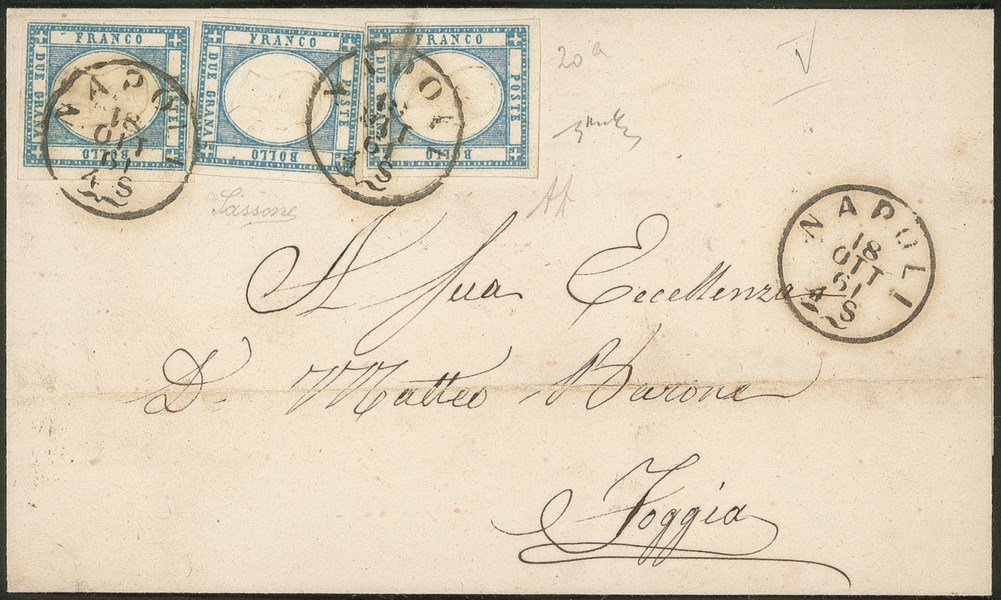 FRANCO DUE GRANA BOLLO
FRANCO DUE GRANA BOLLO POSTE
FRANCO DUE GRANA BOLLO POSTE
NAPOLI
18
OTT
61
4 S
NAPOLI
18
OTT
61
4 S
20a
Sassone
NAPOLI
18
OTT
61
4 S
A Sua Eccellenza
Dn Matteo Barone
Foggia